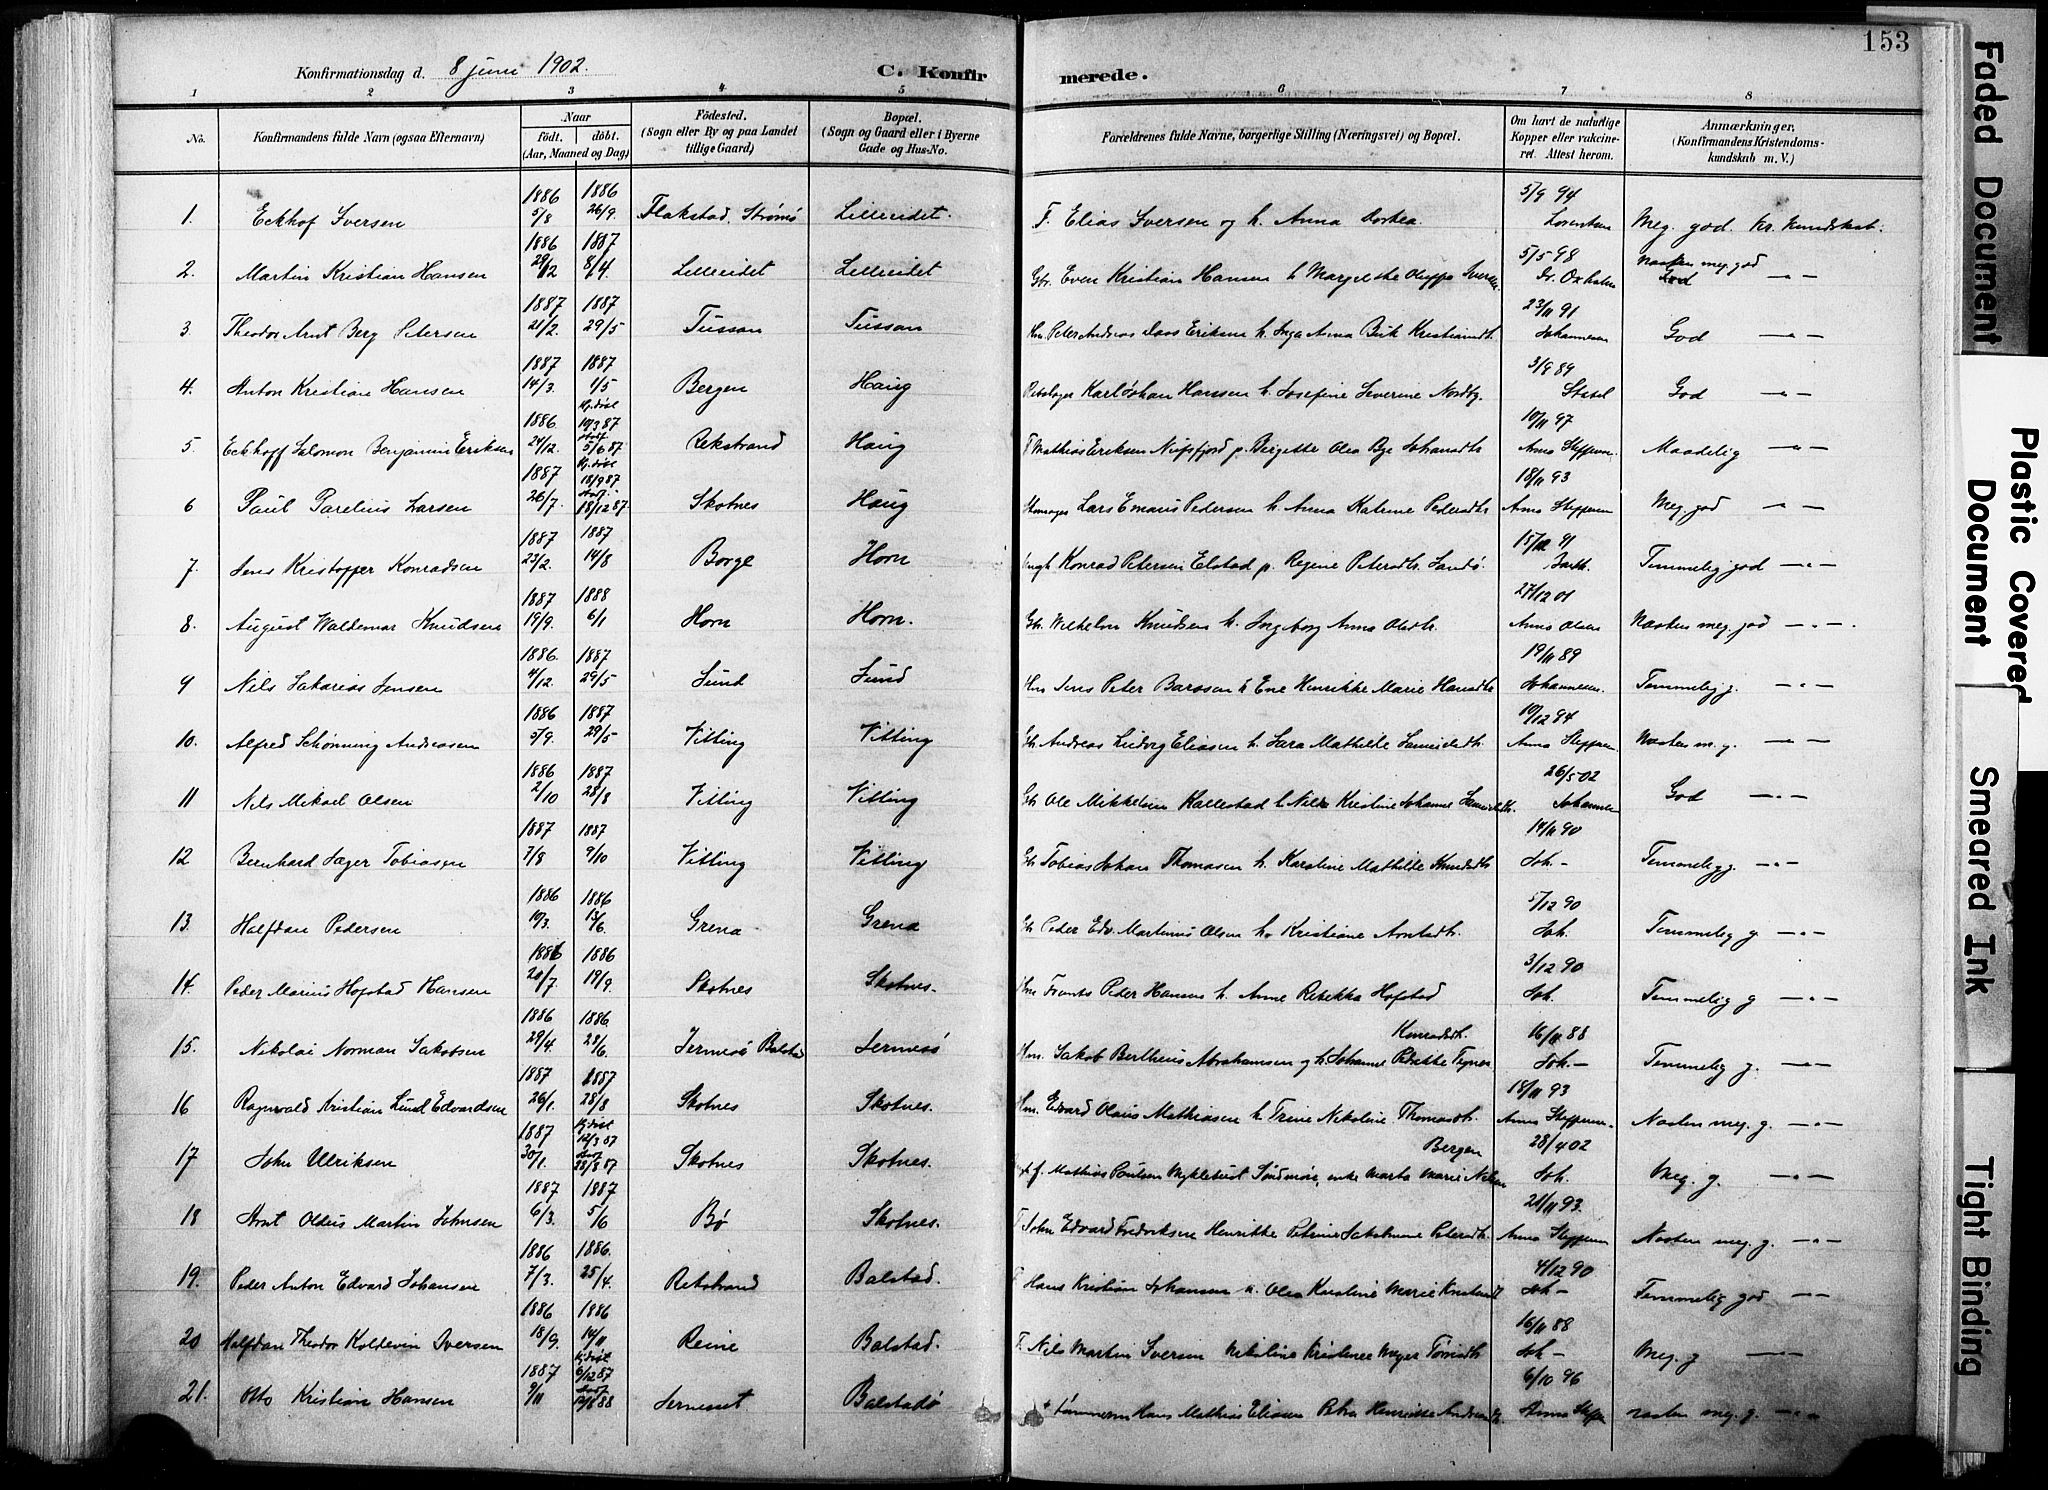 153
Konfirmationsdag d. 8 juni 1902. C. Konfirmerede.
1 2 3 4 5 6 7 8
No. Konfirmandens fulde Navn (ogsaa Efternavn) Naar født. døbt. (Aar, Maaned og Dag) Fødested. (Sogn eller By og paa Landet tillige Gaard) Bopæl. (Sogn og Gaard eller i Byerne Gade og Hus-No. Forældrenes fulde Navne, borgerlige Stilling (Næringsvei) og Bopæl. Om havt de naturlige Kopper eller vakcineret. Attest herom. Anmærkninger, (Konfirmandens Kristendomskundskab m. V.)
1. Eckhof Iversen 1886 5/8 1886 26/9. Flakstad. Strømø Lilleeidet. F. Elias Iversen og h. Anna Dorthea 5/9 94 Meg. god. Kr. Kundskab.
2. Martin Kristian Hansen 1886 29/12 1887 8/4. Lilleeidet Lilleeidet Gbr. Even Kristian Hansen h. 5/5 98 Næsten meg. god — " —
3. Theodor Arnt Berg Petersen 1887 21/2. 1887 29/5 Tussan Tussan Hm. Peter Andreas Eriksen h. Inga Anna 23/11 91 Johannesen God — " —
4. Anton Kristian Hansen 1887 14/3. 1887 1/5 Bergen Haug Karl Johan Hansen h. Josefine Severine Nordby. 3/9 89 God — " —
5. Eckhoff Salomon Benjamin Eriksen 1886. 24/12. Hj. døbt 10/3 87 5/6 87 Rekstrand Haug F Mathias Eriksen Nufsfjord p. Birgitte Olea 10/11 97 Anna Steffensen. Maadelig — " —
6 Paul Parelius Larsen 1887 26/7. Hj. døbt 18/9 87 18/12 87. Skotnes Haug Lars Emaus Pedersen h. Anna Katrine Pedersdtr 18/11 93 Anna Steffensen Meg. god — " —
7. Jens Kristoffer Konradsen 1887 23/2. 1887 14/8 Borge Horn Ungk Konrad Petersen Elstad p. Regine Petersdtr. Sandø. 15/12 91 Temmelig god — " —
8. August Waldemar Knudsen 1887 19/9. 1888 6/1 Horn Horn. Gbr. Wilhelm Knudsen h. Ingeborg Anna Olsdtr. 27/12 01 Anna Olsen Næsten meg. god — " —.
9 Nils Sakarias Jensen 1886. 4/12. 1887 29/5 Sund Sund Hm Jens Peter h Ene Henrikke Marie Hansdtr 19/11 89 Johannesen. Temmelig g. — " —
10. Alfred Schønning Andreasen 1886 5/9. 1887 29/5 Vitting Vitting Gbr. Andreas Ludvig Eliasen h. Sara Mathilde 10/12 94 Anna Steffensen Næsten m. g. — " —
11 Nils Mikael Olsen 1886 2/10 1887 28/8 Vitting Vitting Gbr Ole Mikkelsen Kallestad h Kristine Johanne 26/5 02 Johannesen God — " —
12 Bernhard Jæger Tobiasen 1887 7/8 1887 9/10 Vitting Vitting Gbr Tobias Johan Thomasen h. Karoline Mathilde Knudsdtr 14/11 90 Joh. - Temmelig g. — " —
13. Halfdan Pedersen 1886 10/3. 1886 13/6. Grena Grena Gbr Peder Edv. Martinus Olsen h. Kristiane 5/12 90 Joh. Temmelig g — " —
14. Peder Marius Hofstad Hansen 1886 20/7. 1886 19/9. Skotnes Skotnes. Hm Frants Peder Hansen h. Anne Rebekka Hofstad 3/12 90 Joh. Temmelig g — " —
15. Nikolai Norman Jakobsen 1886 29/4. 1886. 28/6. Balstad Hm. Jakob Bertheus Abrahamsen og h. Johanne Konradsdtr. 16/11 88 Joh. - Temmelig g. — " —
16 Ragnvald Kristian Lund Edvardsen 1887 26/1. 1887 28/8 Skotnes Skotnes. Hm. Edvard Olaus Mathiasen h Trine Nikoline Thomasdtr. 18/11 93 Anna Steffensen. Næsten meg. g. — " —
17 John Ulriksen 1887 30/1. Hj. døbt 12/3 87 28/8 87 Skotnes Skotnes. Mathias Paulsen Myklebust Søndmør, enke Marta Marie Nilsen Bergen 28/4 02 Joh. Meg. g. — " —
18 Arnt Oldus Martin Johnsen 1887 6/3. 1887 5/6 Bø Skotnes. F John Edvard Fredriksen Henrikke Petrine Jakobine Petersdtr. 21/11 93. Anna Steffensen Næsten meg. g. — " —
19. Peder Anton Edvard Johansen 1886 7/3. 1886. 25/4. Rekstrand Balstad. F Hans Kristian Johansen h. Olea Kristine Marie 4/12 90 Joh - Temmelig god — " —
20 Halfdan Theodor Koldevin Iversen 1886 18/9. 1886 14/11 Reine Balstad. F Nils Martin Iversen Nikoline Kristence Meyer 16/11 88 Joh - Meg. g — " —
21. Otto Kristian Hansen 1887 9/11 Hj. døbt 6/12 87 Balstadø Hans Mathias Eliasen Petra Henrikke 6/10 96 Anna næsten meg. g. — " —
Faded Document
Plastic Covered Document
Smeared Ink
Tight Binding